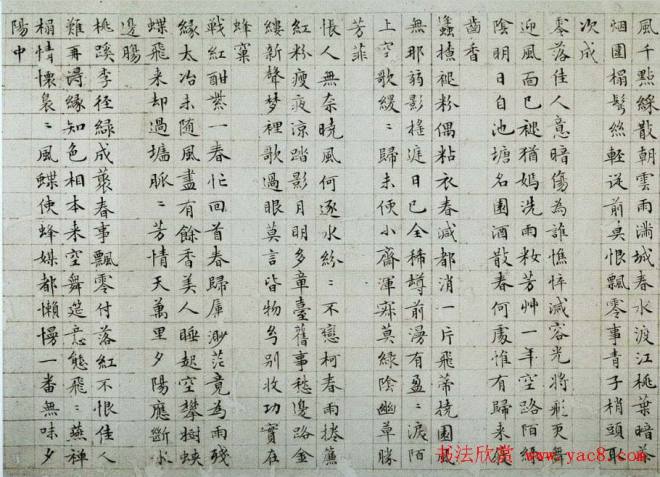 風千點綵散朝雲雨滿城春水渡江桃葉暗茶
烟圍榻鬢絲輕從前莫恨飄零事青子梢頭取
次成
零落佳人意暗傷為誰憔悴減容光將飛更舞
迎風面已褪猶嫣洗雨妝芳艸一年空路陌綠
陰明日自池塘名園酒散春何處惟有歸来屐
齒香
蜂褪粉偶粘衣春減都消一片飛蒂撓園風
無那弱影搖庭日已全稀樽前漫有盈〻淚陌
上空歌緩〻歸未便小齋渾寂莫綠陰幽草勝
芳菲
悵人無奈曉風何逐水紛〻不戀柯春雨捲簾
紅粉瘦夜涼踏影月明多章臺舊事愁邊路金
縷新聲夢裡歌過眼莫言皆物別收功實在
蜂窠
戰紅酣紫一春忙回首春歸屬渺茫竟為雨殘
緣太冶未隨風盡有餘香美人睡起空攀樹蛺
蝶飛来却過墻脈〻芳情天萬里夕陽應斷水
邊腸
桃蹊李徑綠成叢春事飄零付落紅不恨佳人
難再得緣知色相本来空舞筵意態飛〻燕禪
榻情懷裊〻風蝶使蜂媒都懶慢一番無味夕
陽中
书法欣赏 www.yac8.com